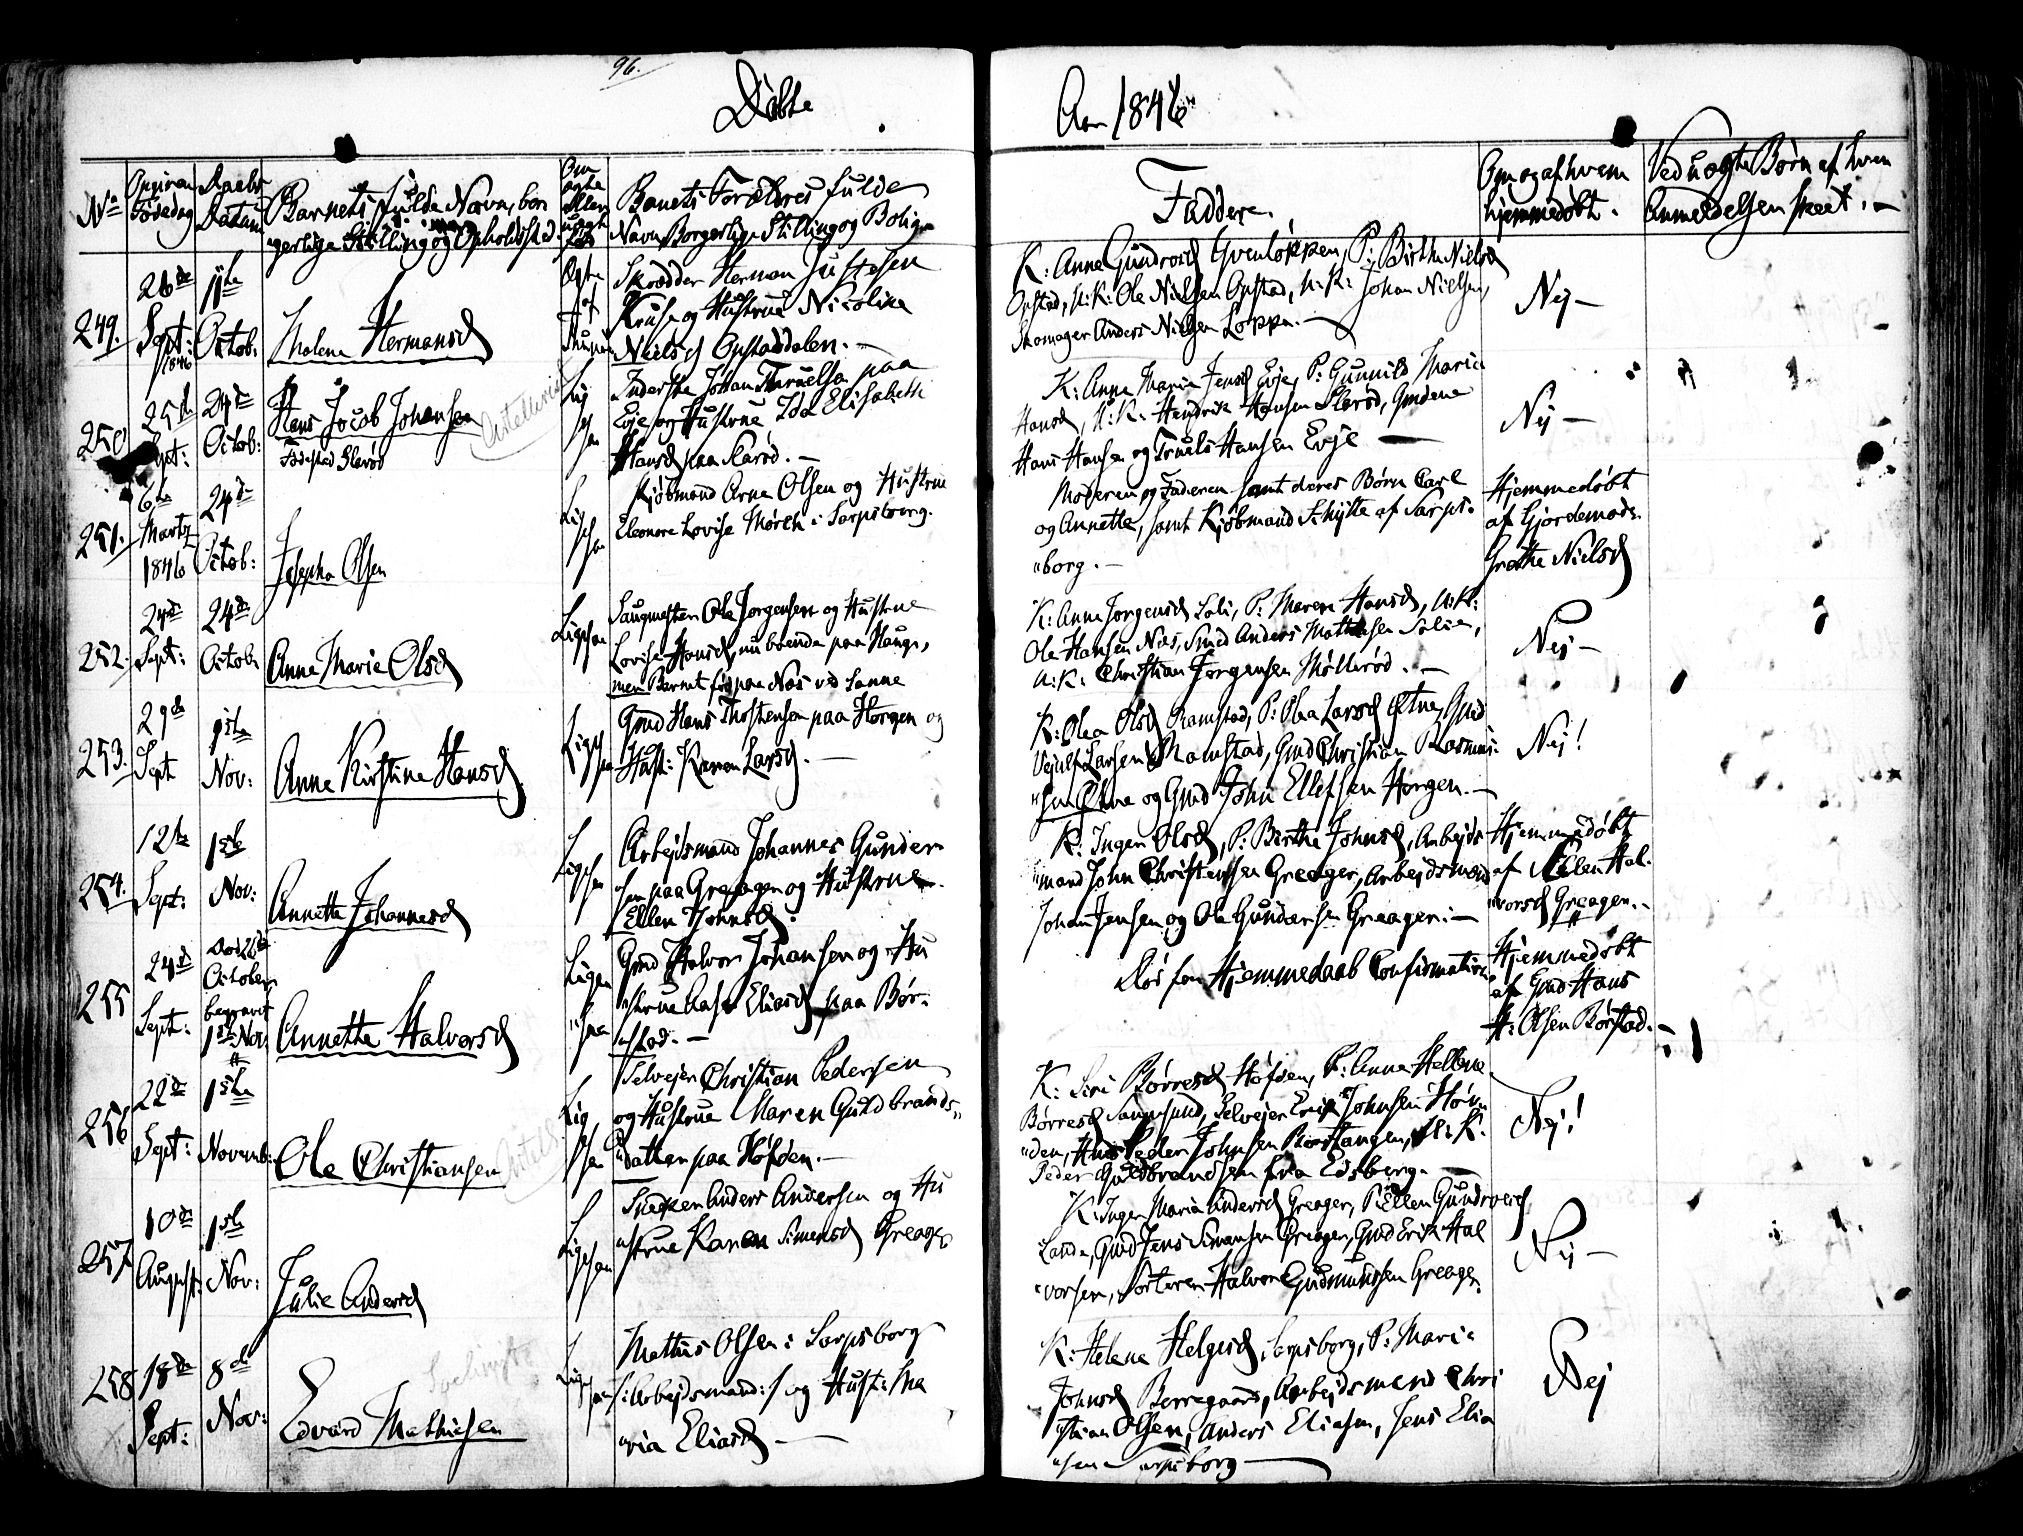 96.
Døbte
Aar 1846
No
Opgiven Fødedag
Daabs Datum
Barnets fulde Navn, borgerlige Stilling og Opholdssted
Om ægte eller uægte født
Barnets Forældres fulde
Navn Borgerlige Stilling og Bolig
Faddere.
Om og af hvem
hjemmedøbt.
Ved uægte Børn af hvem
Anmeldelsen skeet.
249.
26de Sept: 1846
11te Octob:
Malene Hermansd
Skrædder Herman Justesen
Kruse og Hustrue Nicoline
Nielsd Opstaddalen.
K: Anne Gundrosd Gvenløkken, P: Birthe Nielsd
Opstad, U:K: Ole Nielsen Opstad, U:K: Johan Nielsen,
Skomager Anders Nielsen Løkke.
Nej
250
25d Sept:
24d Octob:
Hans Jacob Johansen
Fødested Slerød
Inderste Johan Truelsen paa
Evje og Hustrue Ida Elisabeth
Hansd paa Slerød.
K: Anne Marie Jensd Evje, P: Gunnild Marie
Hansd, U:K: Hendrik Hansen Slerød, Gmdene
Hans Hansen og Truels Hansen Evje
Nej
251.
6te Martz 1846
24d Octob:
Josepha Olsen
Ligesaa
Kjøbmand Arne Olsen og Hustrue
Eleonore Lovise Mørch i Sarpsborg.
Moderen og Faderen samt deres Børn Carl
og Annette, samt Kjøbmand Schytte af Sarps-
"borg.
Hjemmedøbt
af Gjordemoder
Grethe Nielsd
252.
24d Sept:
24de Octob:
Anne Marie Olsd
Ligesaa
Saugmester Ole Jørgensen og Hustrue
Lovise Hansd, nu boende paa Hauge,
men Barnet fød paa Næs ved Sanne
K: Anne Jørgensd Soli, P: Maren Hansd, U:K:
Ole Hansen Næs, Smed Anders Mathiesen Solie,
U:K: Christian Jørgensen Møllerød.
Nej
253.
29de Sept
1ste Nov:
Anne Kirstine Hansd
Ligesaa
Gmd Hans Thostensen paa Horgen og
Hust: Karen Larsd.
K: Olea Olsd Ramstad, P: Olea Larsd Østne, Gmd
Larsen Ramstad, Gmd Christian Rasmus-
"sen Østne og Gmd John Ellefsen Horgen.
Nej!
254.
12te Sept:
1ste Nov:
Annette Johannesd
Ligesaa
Arbejdsmand Johannes Gunder-
"sen paa Greager og Hustrue
Ellen Johnsd.
K: Inger Olsd, P: Birthe Johnsd, Arbejds-
"mand John Christensen Greager, Arbejdsmand
Johan Jensen og Ole Gundersen Greager.
Hjemmedøbt
af Ellen Hal-
"vorsd Greager.
255
24d Sept:
Død 26de October begravet 1ste Nov:
Annette Halvorsd
Ligesaa
Gmd Halvor Johansen og Hu
"strue Aase Eliasd paa Bør-
"stad.
Død før Hjemmedaab Confirmation
Hjemmedøbt
af Gmd Hans
H: Olsen Børstad.
256
22de Sept:
1ste Novemb:
Ole Christiansen
Ligesaa
Selvejer Christian Pedersen
og Hustrue Maren Guldbrands-
"datter paa Høfden.
K: Siri Børresd Høfden, P: Anne Hellene
Børresd Sannesund, Selvejer Erik Johnsen Høv-
"den, Peder Johnsen Rostangen, U:K:
Peder Guldbrandsen fra Edsberg.
Nej!
257
10de August:
1ste Nov:
Julie Andersd
Ligesaa
Snekker Anders Andersen og Hu
"strue Karen Simensd Greager
K: Inger Maria Andersd Greager, P: Ellen Gundroesd
Lande, Gmd Jens Simensen Greager, Gmd Erik Hal
"vorsen, Sorterer Halvor Gudmundsen Greager.
Nej
258
18de Sept:
8de Nov:
Edvard Mathiesen
Ligesaa
Mathis Olsen i Sarpsborg
/: Arbejdsmand:/ og Hust: Ma
"ria Eliasd
K: Helene Helgesd, Sarpsborg, P: Marie
Johnsd Borregaard, Arbejdsmand Chri
"stian Olsen, Anders Eliasen, Jens Elia
"sen Sarpsborg
Nej